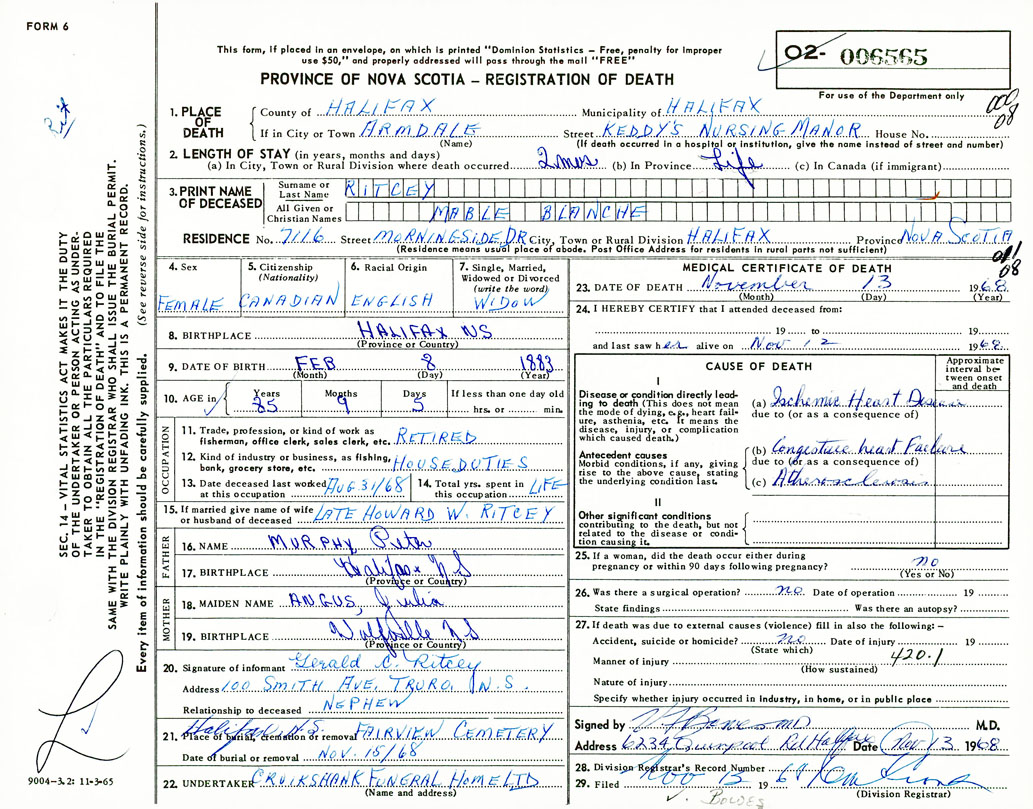 FORM 6
This form, if placed in an envelope, on which is printed "Dominion Statistics – Free, penalty for improper
use $50," and properly addressed will pass through the mail "FREE"
PROVINCE OF NOVA SCOTIA – REGISTRATION OF DEATH
02- 006565
For use of the Department only
000
08
SEC. 14 – VITAL STATISTICS ACT MAKES IT THE DUTY
OF THE UNDERTAKER OR PERSON ACTING AS UNDER-
TAKER TO OBTAIN ALL THE PARTICULARS REQUIRED
IN THE "REGISTRATION OF DEATH" AND TO FILE THE
SAME WITH THE DIVISION REGISTRAR WHO SHALL ISSUE THE BURIAL PERMIT.
WRITE PLAINLY WITH UNFADING INK. THIS IS A PERMANENT RECORD.
Every item of information should be carefully supplied. (See reverse side for instructions.)
1. PLACE OF DEATH County of HALIFAX Municipality of HALIFAX
If in City or Town ARMDALE Street KEDDY'S NURSING MANOR House No.
(Name) (If death occurred in a hospital or institution, give the name instead of street and number)
2. LENGTH OF STAY (in years, months and days)
(a) In City, Town or Rural Division where death occurred 2 mos (b) In Province Life (c) In Canada (if immigrant)
3. PRINT NAME OF DECEASED Surname or Last Name RITCEY
All Given or Christian Names MABLE BLANCHE
RESIDENCE No. 7116 Street MORNINGSIDE DR City, Town or Rural Division HALIFAX Province NOVA SCOTIA
(Residence means usual place of abode. Post Office Address for residents in rural parts not sufficient)
011
08
4. Sex FEMALE
5. Citizenship (Nationality) CANADIAN
6. Racial Origin ENGLISH
7. Single, Married, Widowed or Divorced (write the word) WIDOW
8. BIRTHPLACE HALIFAX NS
(Province or Country)
9. DATE OF BIRTH FEB 8 1883
(Month) (Day) (Year)
10. AGE in Years 85 Months 9 Days 5 If less than one day old hrs. or min.
OCCUPATION
11. Trade, profession, or kind of work as
fisherman, office clerk, sales clerk, etc. RETIRED
12. Kind of industry or business, as fishing,
bank, grocery store, etc. HOUSE DUTIES
13. Date deceased last worked at this occupation AUG. 31/68 14. Total yrs. spent in this occupation LIFE
15. If married give name of wife
or husband of deceased LATE HOWARD W. RITCEY
FATHER
16. NAME MURPHY Peter
17. BIRTHPLACE Halifax N S
(Province or Country)
MOTHER
18. MAIDEN NAME ANGUS, Julia
19. BIRTHPLACE N S
(Province or Country)
20. Signature of informant Gerald C. Ritcey
Address 100 SMITH AVE, TRURO, N.S.
Relationship to deceased NEPHEW
21. Place of burial, cremation or removal Halifax N.S. FAIRVIEW CEMETERY
Date of burial or removal NOV. 15/68
22. UNDERTAKER CRUIKSHANK FUNERAL HOME LTD
(Name and address)
MEDICAL CERTIFICATE OF DEATH
23. DATE OF DEATH November 13 1968
(Month) (Day) (Year)
24. I HEREBY CERTIFY that I attended deceased from:
19 to 19
and last saw her alive on Nov 12 1968
CAUSE OF DEATH
Approximate interval between onset and death
I
Disease or condition directly lead-
ing to death (This does not mean
the mode of dying, e.g., heart fail-
ure, asthenia, etc. It means the
disease, injury, or complication
which caused death.)
(a) Ischemic Heart Disease
due to (or as a consequence of)
Antecedent causes
Morbid conditions, if any, giving
rise to the above cause, stating
the underlying condition last.
(b) Congestive heart Failure
due to (or as a consequence of)
(c) Atherosclerosis
II
Other significant conditions
contributing to the death, but not
related to the disease or condi-
tion causing it.
25. If a woman, did the death occur either during
pregnancy or within 90 days following pregnancy? no
(Yes or No)
26. Was there a surgical operation? no. Date of operation 19
State findings Was there an autopsy?
27. If death was due to external causes (violence) fill in also the following: –
Accident, suicide or homicide? no Date of injury 19
(State which)
Manner of injury 420.1
(How sustained)
Nature of injury
Specify whether injury occurred in Industry, in home, or in public place
Signed by M.D. M.D.
Address 6239 Rd Halifax Date Nov 13 1968
28. Division Registrar's Record Number
29. Filed Nov 13 19 68
(Division Registrar)
9004–3.2: 11-3-65